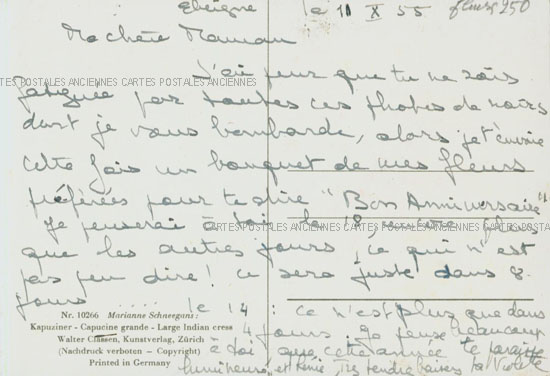 le 11 X 55 fleurs 250
Ma chère Maman
J'ai peur que tu ne sois
CARTES POSTALES ANCIENNES CARTES POSTALES ANCIENNES
fatiguée par toutes ces photos de noirs
dont je vous bombarde, alors je t'envoie
cette fois un bouquet de mes fleurs
préférées pour te dire "Bon Anniversaire"
Je penserai à toi le 18 encore plus
CARTES POSTALES ANCIENNES CARTES POSTALES ANCIENNES
que les autres jours, ce qui n'est
pas peu dire! Ce sera juste dans 8
jours ..... le 14 : ce n'est plus que dans
4 jours. Je pense beaucoup
à toi que cette année te paraisse
lumineuse, et très tendre
Nr. 10266 Marianne Schneegans:
Kapuziner - Capucine grande - Large Indian cress
Walter Classen, Kunstverlag, Zürich
(Nachdruck verboten - Copyright)
Printed in Germany